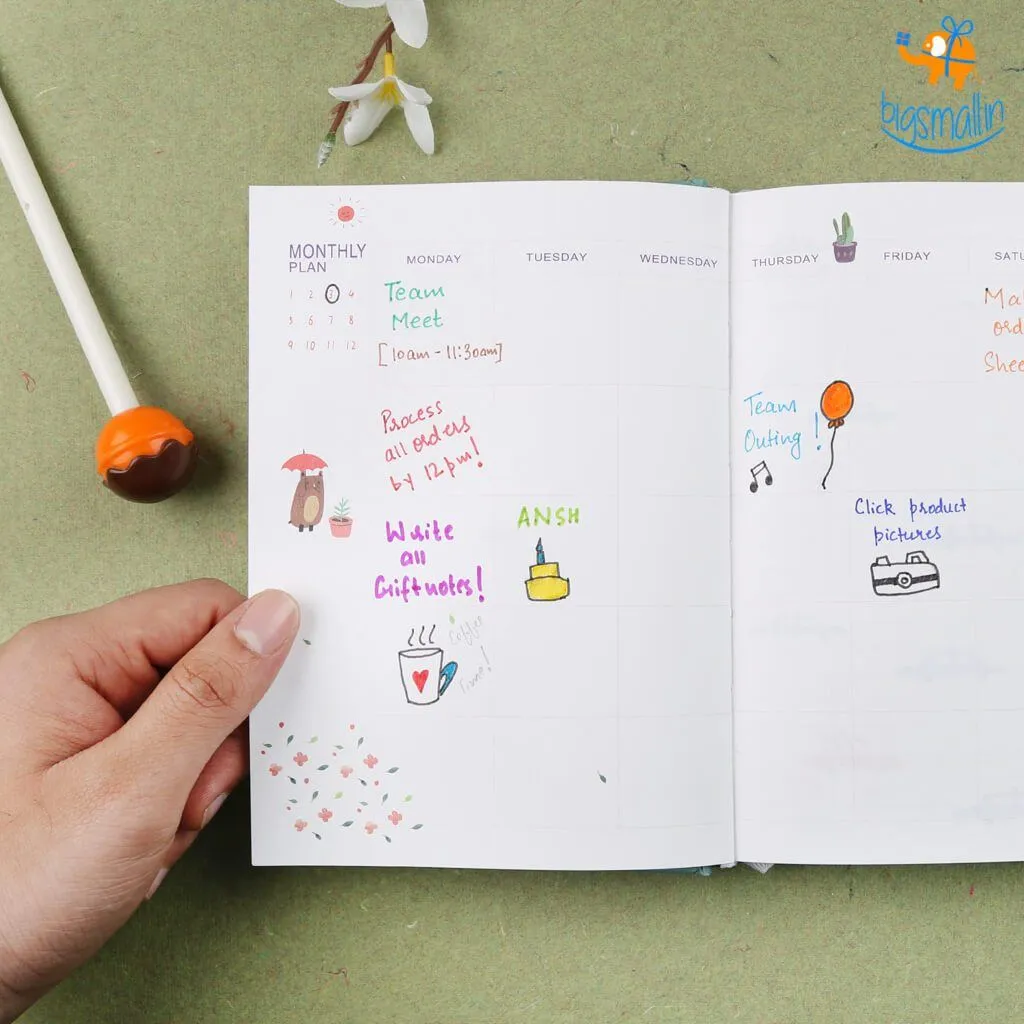 bigsmall.in
MONTHLY
PLAN
MONDAY
TUESDAY
WEDNESDAY
THURSDAY
FRIDAY
1 2 3 4
5 6 7 8
9 10 11 12
Team
Meet
[10am - 11:30am]
Process
all orders
by 12pm!
Team
Outing!
Write
all
Giftnotes!
ANSH
Click product
pictures
Coffee
Time!